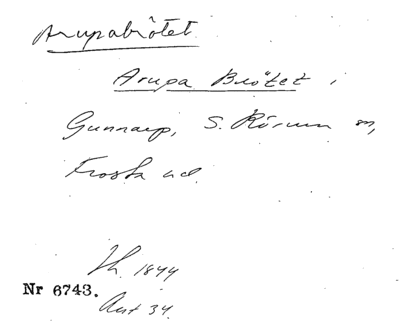 Arupabrötet
Arupa Brötet i
Gunnarp, S. Rörum sn,
Frosta hd.
Th. 1844
Nr 6743.
Avt 34.